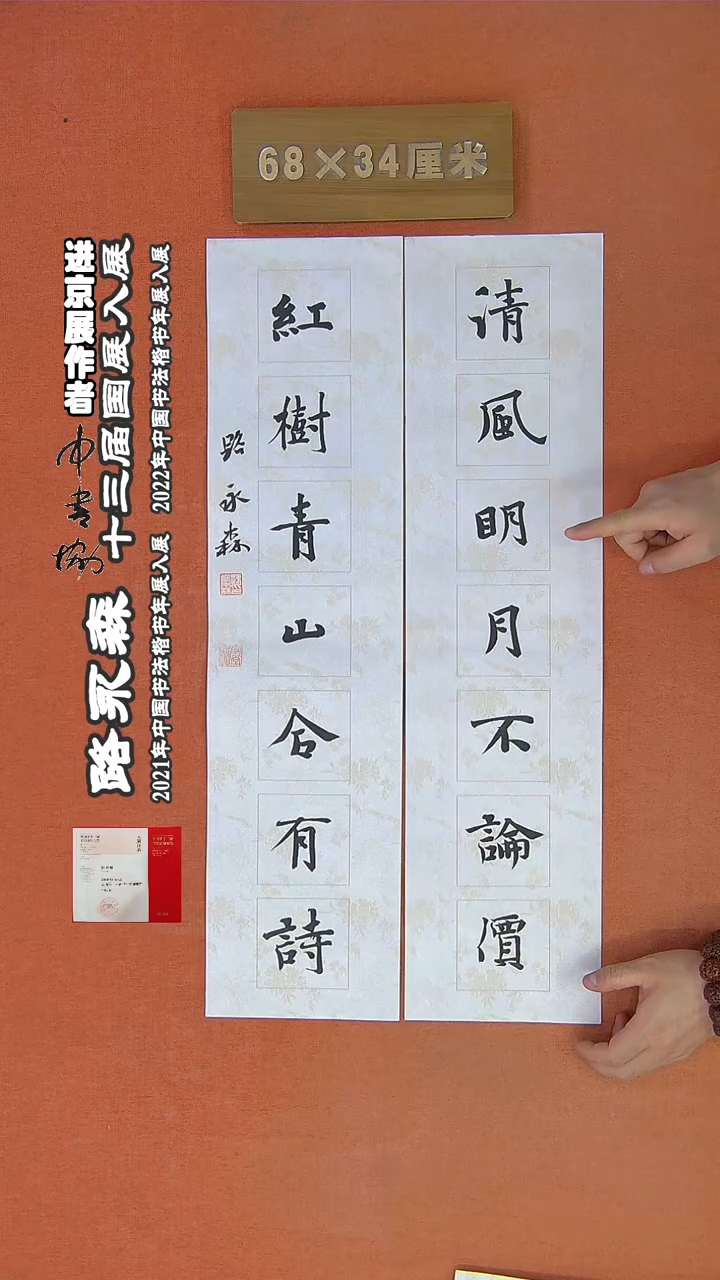 68×34厘米
清風明月不論價
紅樹青山合有詩
路永森
路永森
中书协
进京展作者
十三届国展入展
2021年中国书法楷书年展入展 2022年中国书法楷书年展入展